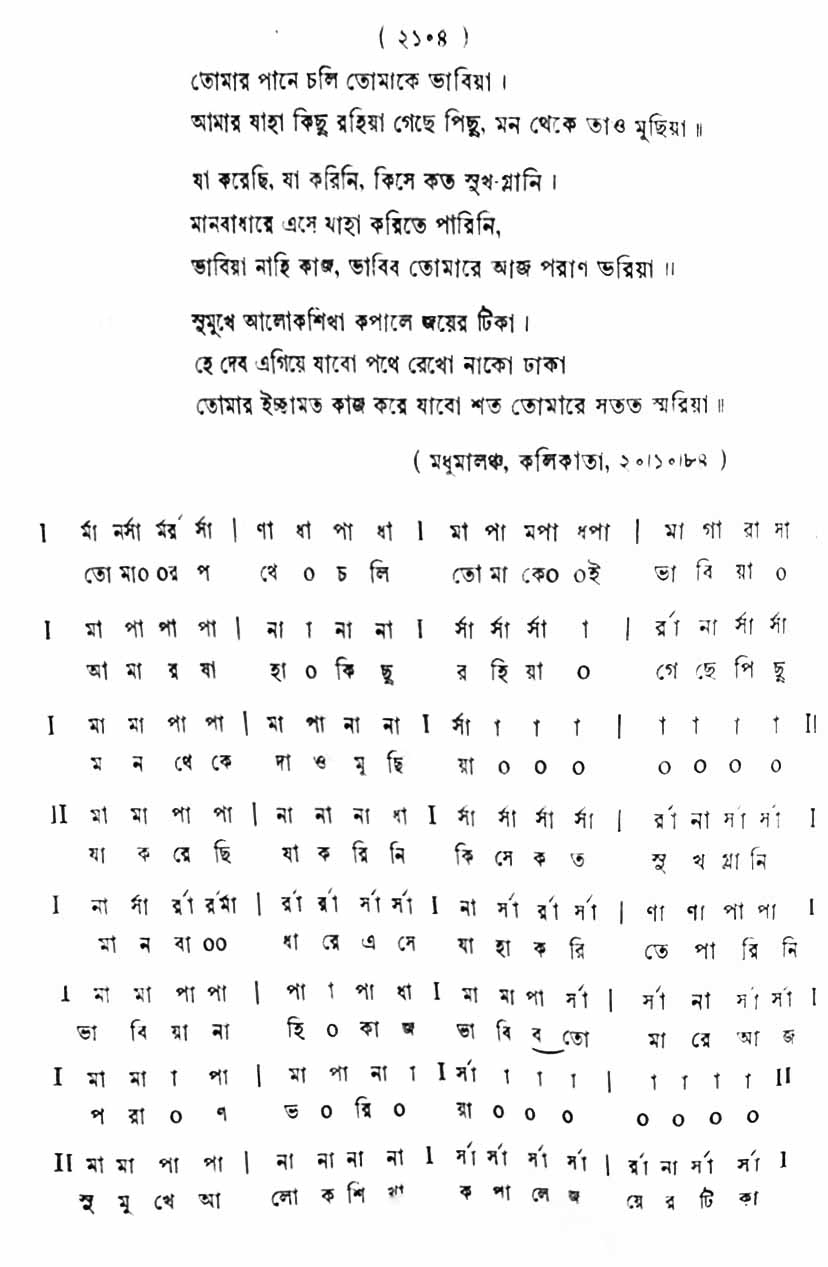 ( ২১০৪ )
তোমার পানে চলি তোমাকে ভাবিয়া ।
আমার যাহা কিছু রহিয়া গেছে পিছু, মন থেকে তাও মুছিয়া ॥
যা করেছি, যা করিনি, কিসে কত সুখ-গ্লানি ।
মানবাধারে এসে যাহা করিতে পারিনি,
ভাবিয়া নাহি কাজ, ভাবিব তোমারে আজ পরাণ ভরিয়া ॥
সুমুখে আলোকশিখা কপালে জয়ের টিকা ।
হে দেব এগিয়ে যাবো পথে রেখো নাকো ঢাকা
তোমার ইচ্ছামত কাজ করে যাবো শত তোমারে সতত স্মরিয়া ॥
( মধুমালঞ্চ, কলিকাতা, ২০।১০।৮৪ )
I র্মা নর্সা র্মর্র র্সা | ণা ধা পা ধা I মা পা মপা ধপা | মা গা রা সা
তো মা০ ০র প থে ০ চ লি তো মা কে০ ০ই ভা বি য়া ০
I মা পা পা পা | না া না না I র্সা র্সা র্সা া | র্রা না র্সা র্সা
আ মা র যা হা ০ কি ছু র হি য়া ০ গে ছে পি ছু
I মা মা পা পা | মা পা না না I র্সা া া া | া া া া II
ম ন থে কে দা ও মু ছি য়া ০ ০ ০ ০ ০ ০ ০
II মা মা পা পা | না না না ধা I র্সা র্সা র্সা র্সা | র্রা না র্সা র্সা I
যা ক রে ছি যা ক রি নি কি সে ক ত সু খ গ্লা নি
I না র্সা র্রা র্রর্মা | র্রা র্রা র্সা র্সা I না র্সা র্রা র্সা | ণা ণা পা পা I
মা ন বা ০০ ধা রে এ সে যা হা ক রি তে পা রি নি
I মা মা পা পা | পা া পা ধা I মা মা পা র্সা | র্সা না র্সা র্সা I
ভা বি য়া না হি ০ কা জ ভা বি ব তো মা রে আ জ
I মা মা া পা | মা পা না া I র্সা া া া | া া া া II
প রা ০ ণ ভ ০ রি ০ য়া ০ ০ ০ ০ ০ ০ ০
II মা মা পা পা | না না না না I র্সা র্সা র্সা র্সা | র্রা না র্সা র্সা I
সু মু খে আ লো ক শি খা ক পা লে জ য়ে র টি কা